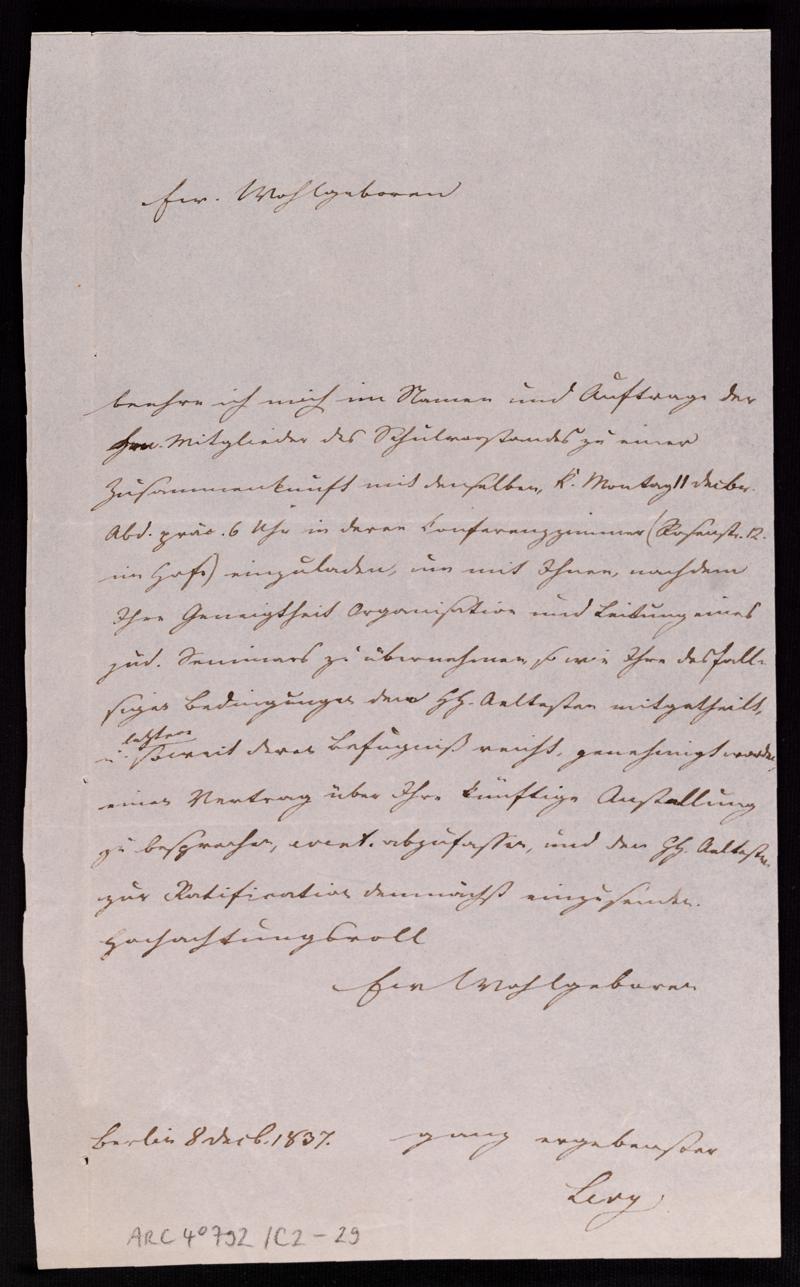 Ew. Wohlgeboren
beehre ich mich im Namen und Auftrage der
Hrn. Mitglieder des Schulvorstandes zu einer
Zusammenkunft mit denselben, k. Montag 11 Decbr.
Abd. präc. 6 Uhr in deren Conferenzzimmer (Rosenstr. 12.
im Hofe) einzuladen, um mit Ihnen, nachdem
Ihre Geneigtheit Organisation und Leitung eines
jüd. Seminars zu übernehmen, so wie Ihre desfall-
sigen Bedingungen den HH. Aeltesten mitgetheilt,
letztere
u. soweit deren Befugniß reicht, genehmigt worden,
einen Vertrag über Ihre künftige Anstellung
zu besprechen, event. abzufassen, und den HH. Aeltesten
zur Ratification demnächst einzusenden.
Hochachtungsvoll
Ew Wohlgeboren
Berlin 8 Decb. 1837. ganz ergebenster
Levy
ARC 4° 792 /C2 - 29